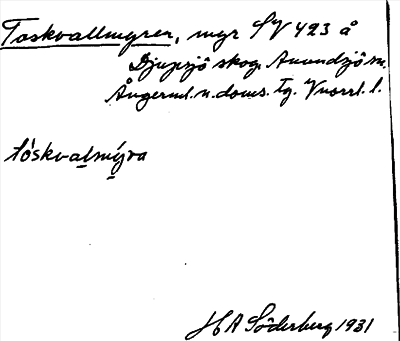 Toskvallmyren, myr SV 423 å
Djupsjö skog. Anundsjö sn.
Ångerml. n. doms. tg. Vnorrl. l.
tòskvalmýra
H A Söderberg 1931